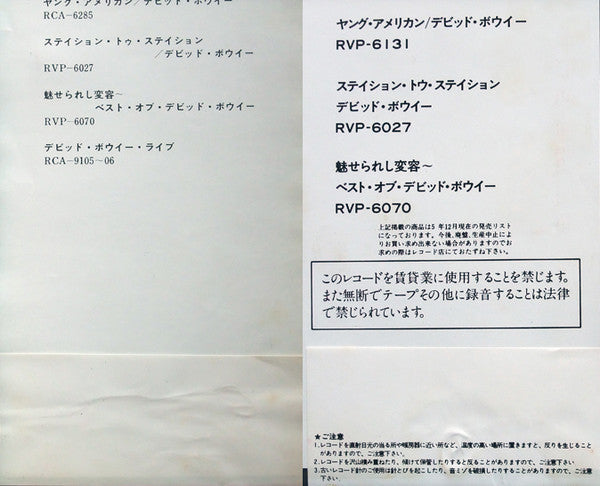 ヤング・アメリカン/デビッド・ボウイー
RCA-6285
ステイション・トゥ・ステイション
/デビッド・ボウイー
RVP-6027
魅せられし変容～
ベスト・オブ・デビッド・ボウイー
RVP-6070
デビッド・ボウイー・ライブ
RCA-9105～06
ヤング・アメリカン/デビッド・ボウイー
RVP-6131
ステイション・トウ・ステイション
デビッド・ボウイー
RVP-6027
魅せられし変容～
ベスト・オブ・デビッド・ボウイー
RVP-6070
上記掲載の商品は5 年12月現在の発売リスト
になっております。今後、廃盤、生産中止によ
りお買い求め出来ない場合がありますのでお
求めの際はレコード店にておたずね下さい。
このレコードを賃貸業に使用することを禁じます。
また無断でテープその他に録音することは法律
で禁じられています。
★ご注意
1.レコードを直射日光の当る所や暖房器に近い所など、温度の高い場所に置きますと、反りを生じること
がありますので、ご注意下さい。
2.レコードを沢山積み重ねたり、傾けて保管したりすると反ることがありますので ご注意下さい
3.古いレコード針のご使用は針とびを起こしたり、音ミゾを破損したりすることがありますので、ご注意
下さい。